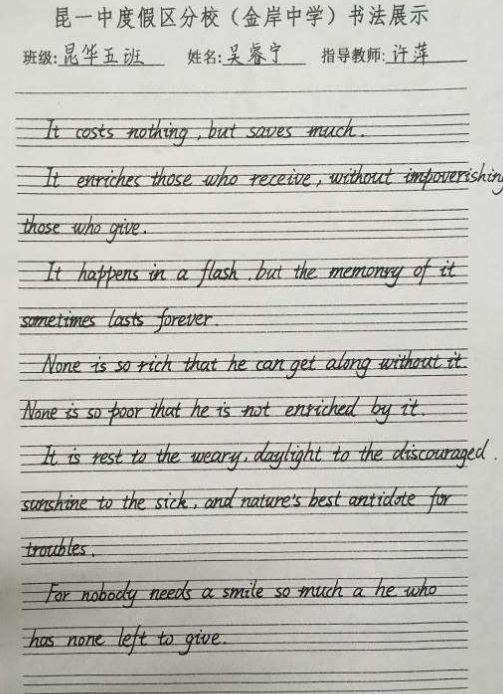 昆一中度假区分校（金岸中学）书法展示
班级:昆华五班 姓名:吴睿宁 指导教师:许萍
It costs nothing, but saves much.
It enriches those who receive, without impoverishing
those who give.
It happens in a flash but the memonry of it
sometimes lasts forever.
None is so rich that he can get along without it.
None is so poor that he is not enriched by it.
It is rest to the weary, daylight to the discouraged.
sunshine to the sick, and nature's best antidote for
troubles.
For nobody needs a smile so much a he who
has none left to give.